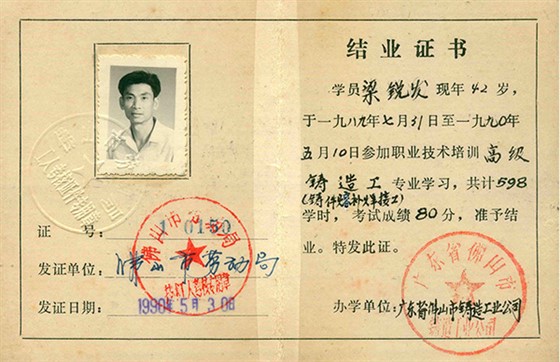 证 号: 10150
发证单位: 佛山市劳动局
发证日期: 1990年5月30日
佛山市劳动局
结业证书
学员梁锐发现年42岁,
于一九八九年七月31日至一九九0年
五月10日参加职业技术培训高级
铸造工专业学习, 共计598
(铸件熔补焊接工)
学时, 考试成绩80分, 准予结
业。特发此证。
办学单位: 广东省佛山市铸造工业公司
广东省佛山市
铸造工业公司